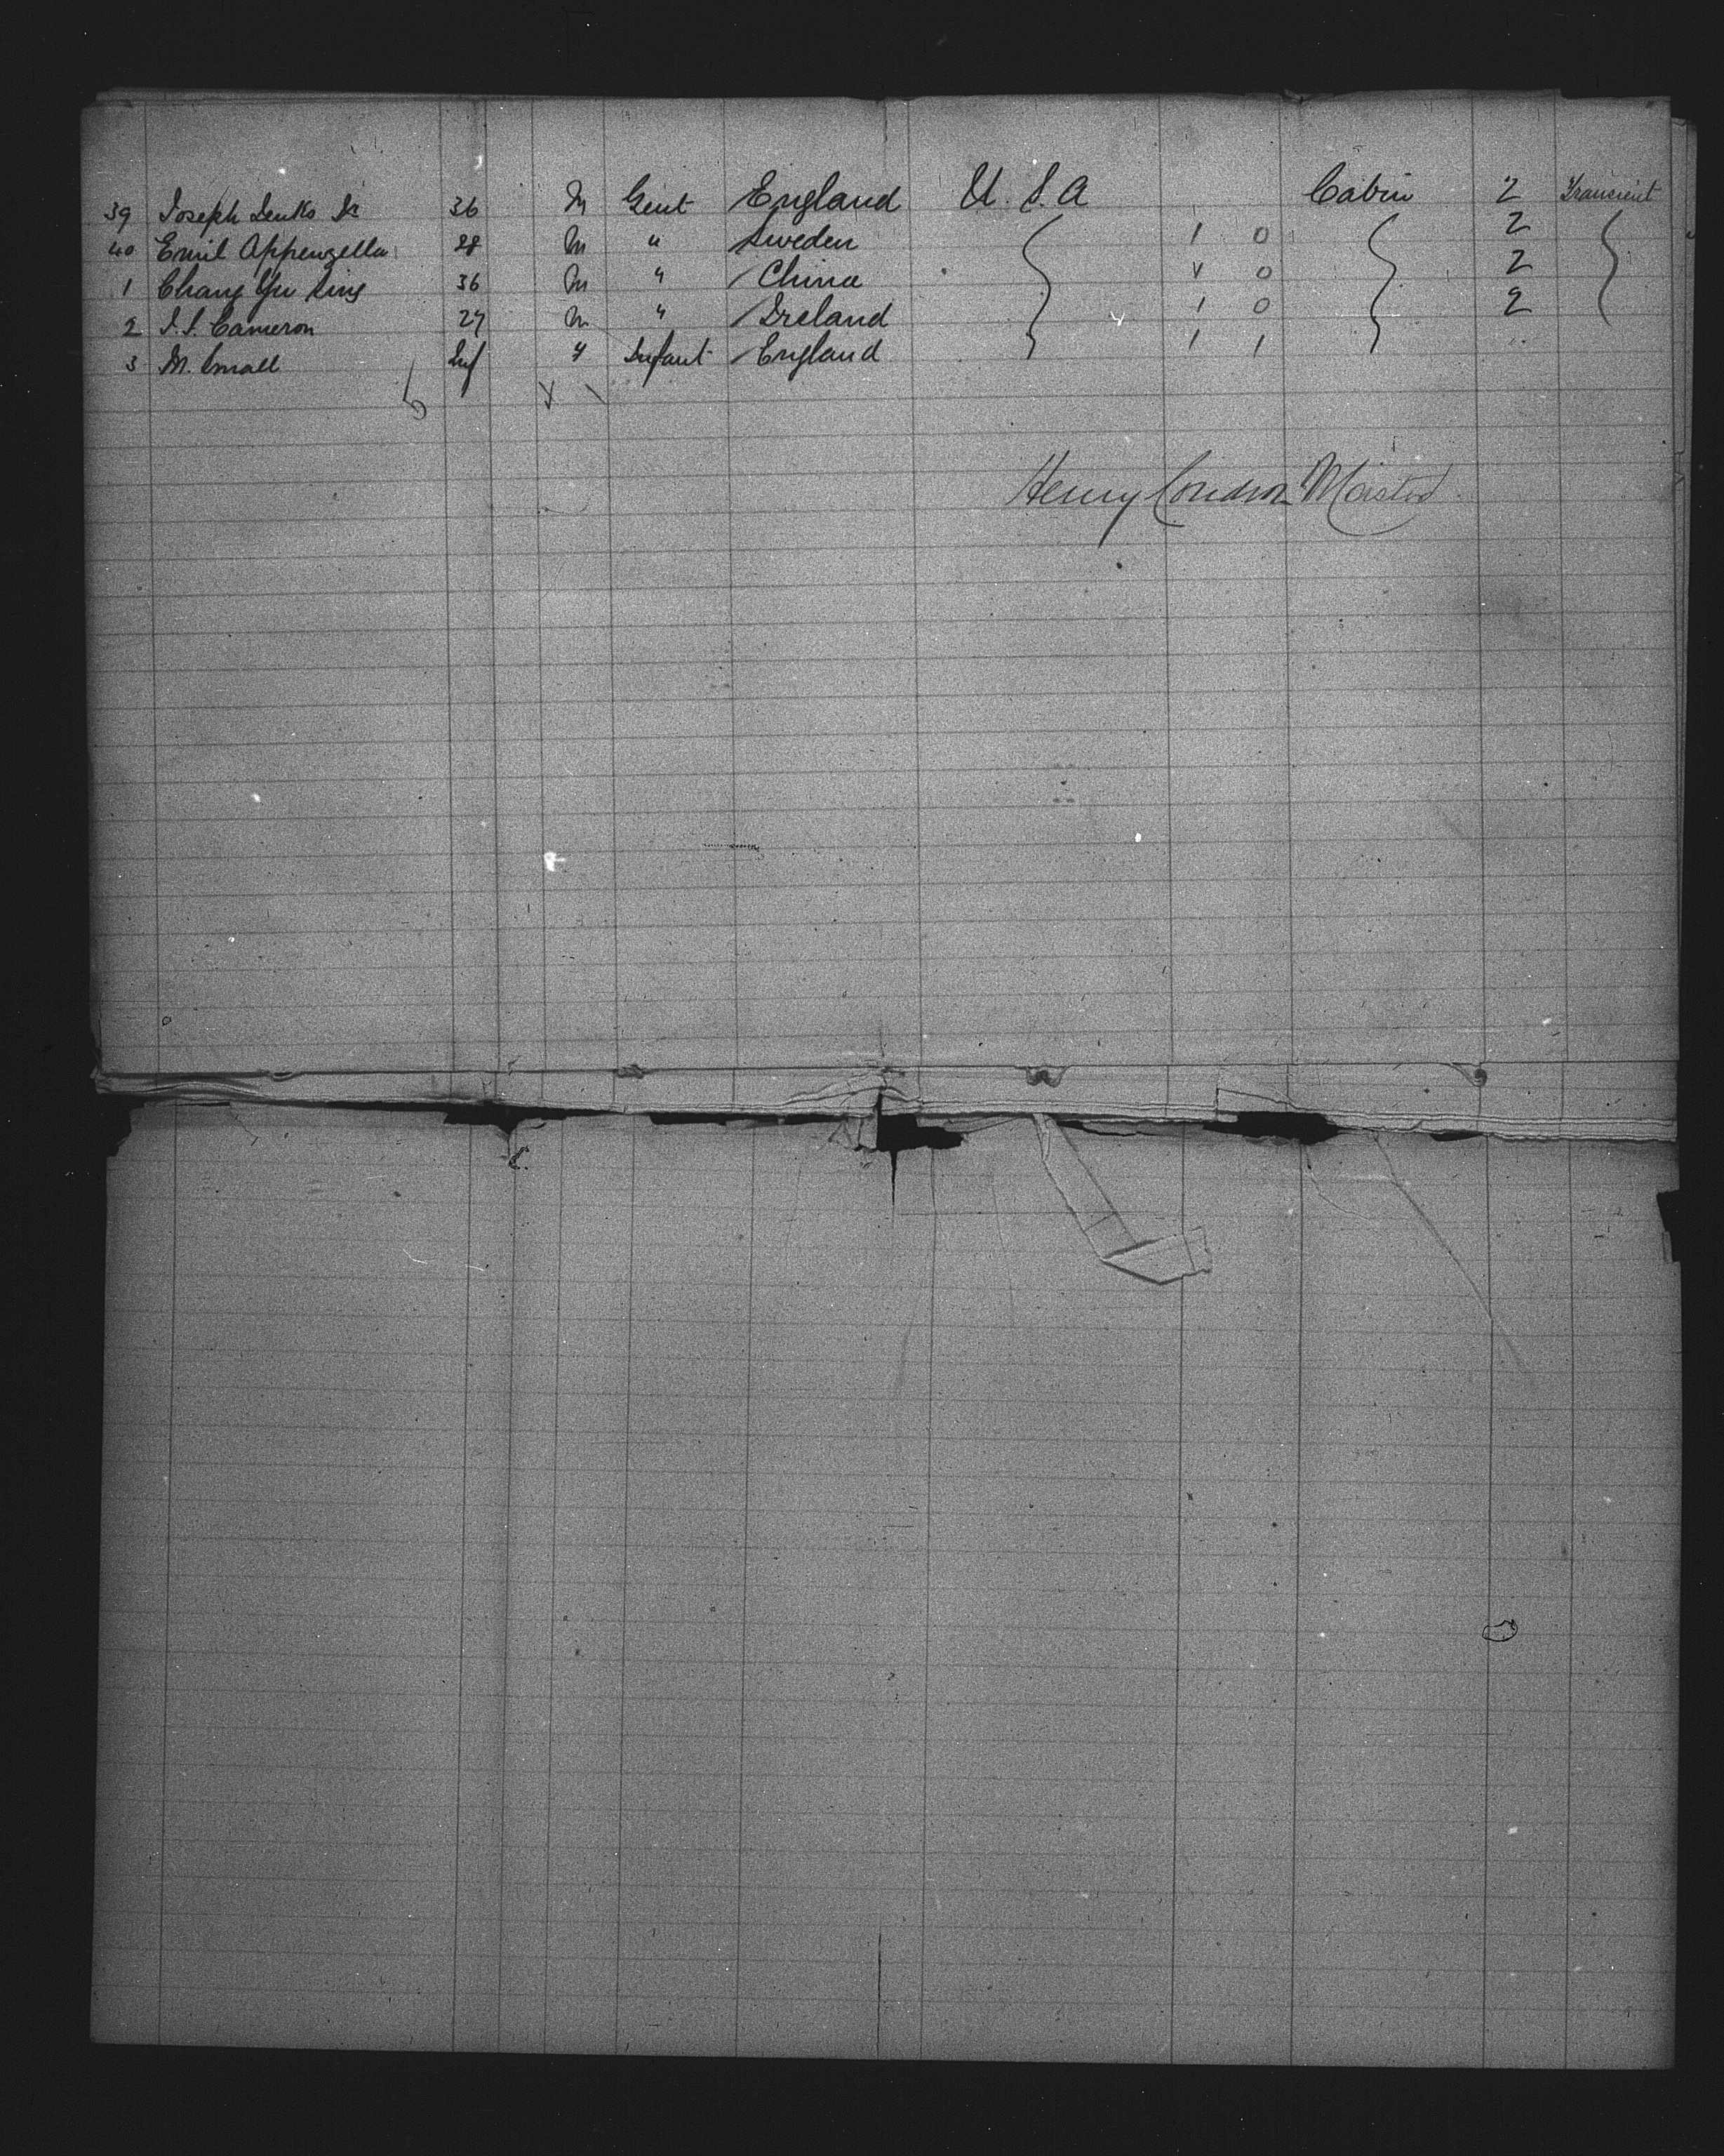 39 Joseph Jenks Jr 36 M Gent England U.S.A Cabin 2 Transient
40 Emil Appenzella 28 M " Sweden 1 0 2
1 Chang Yu 36 M " China V 0 2
2 J.S. Cameron 27 M " Ireland 1 0 2
3 M. Small Inf " Infant England 1 1
Henry Condron Master